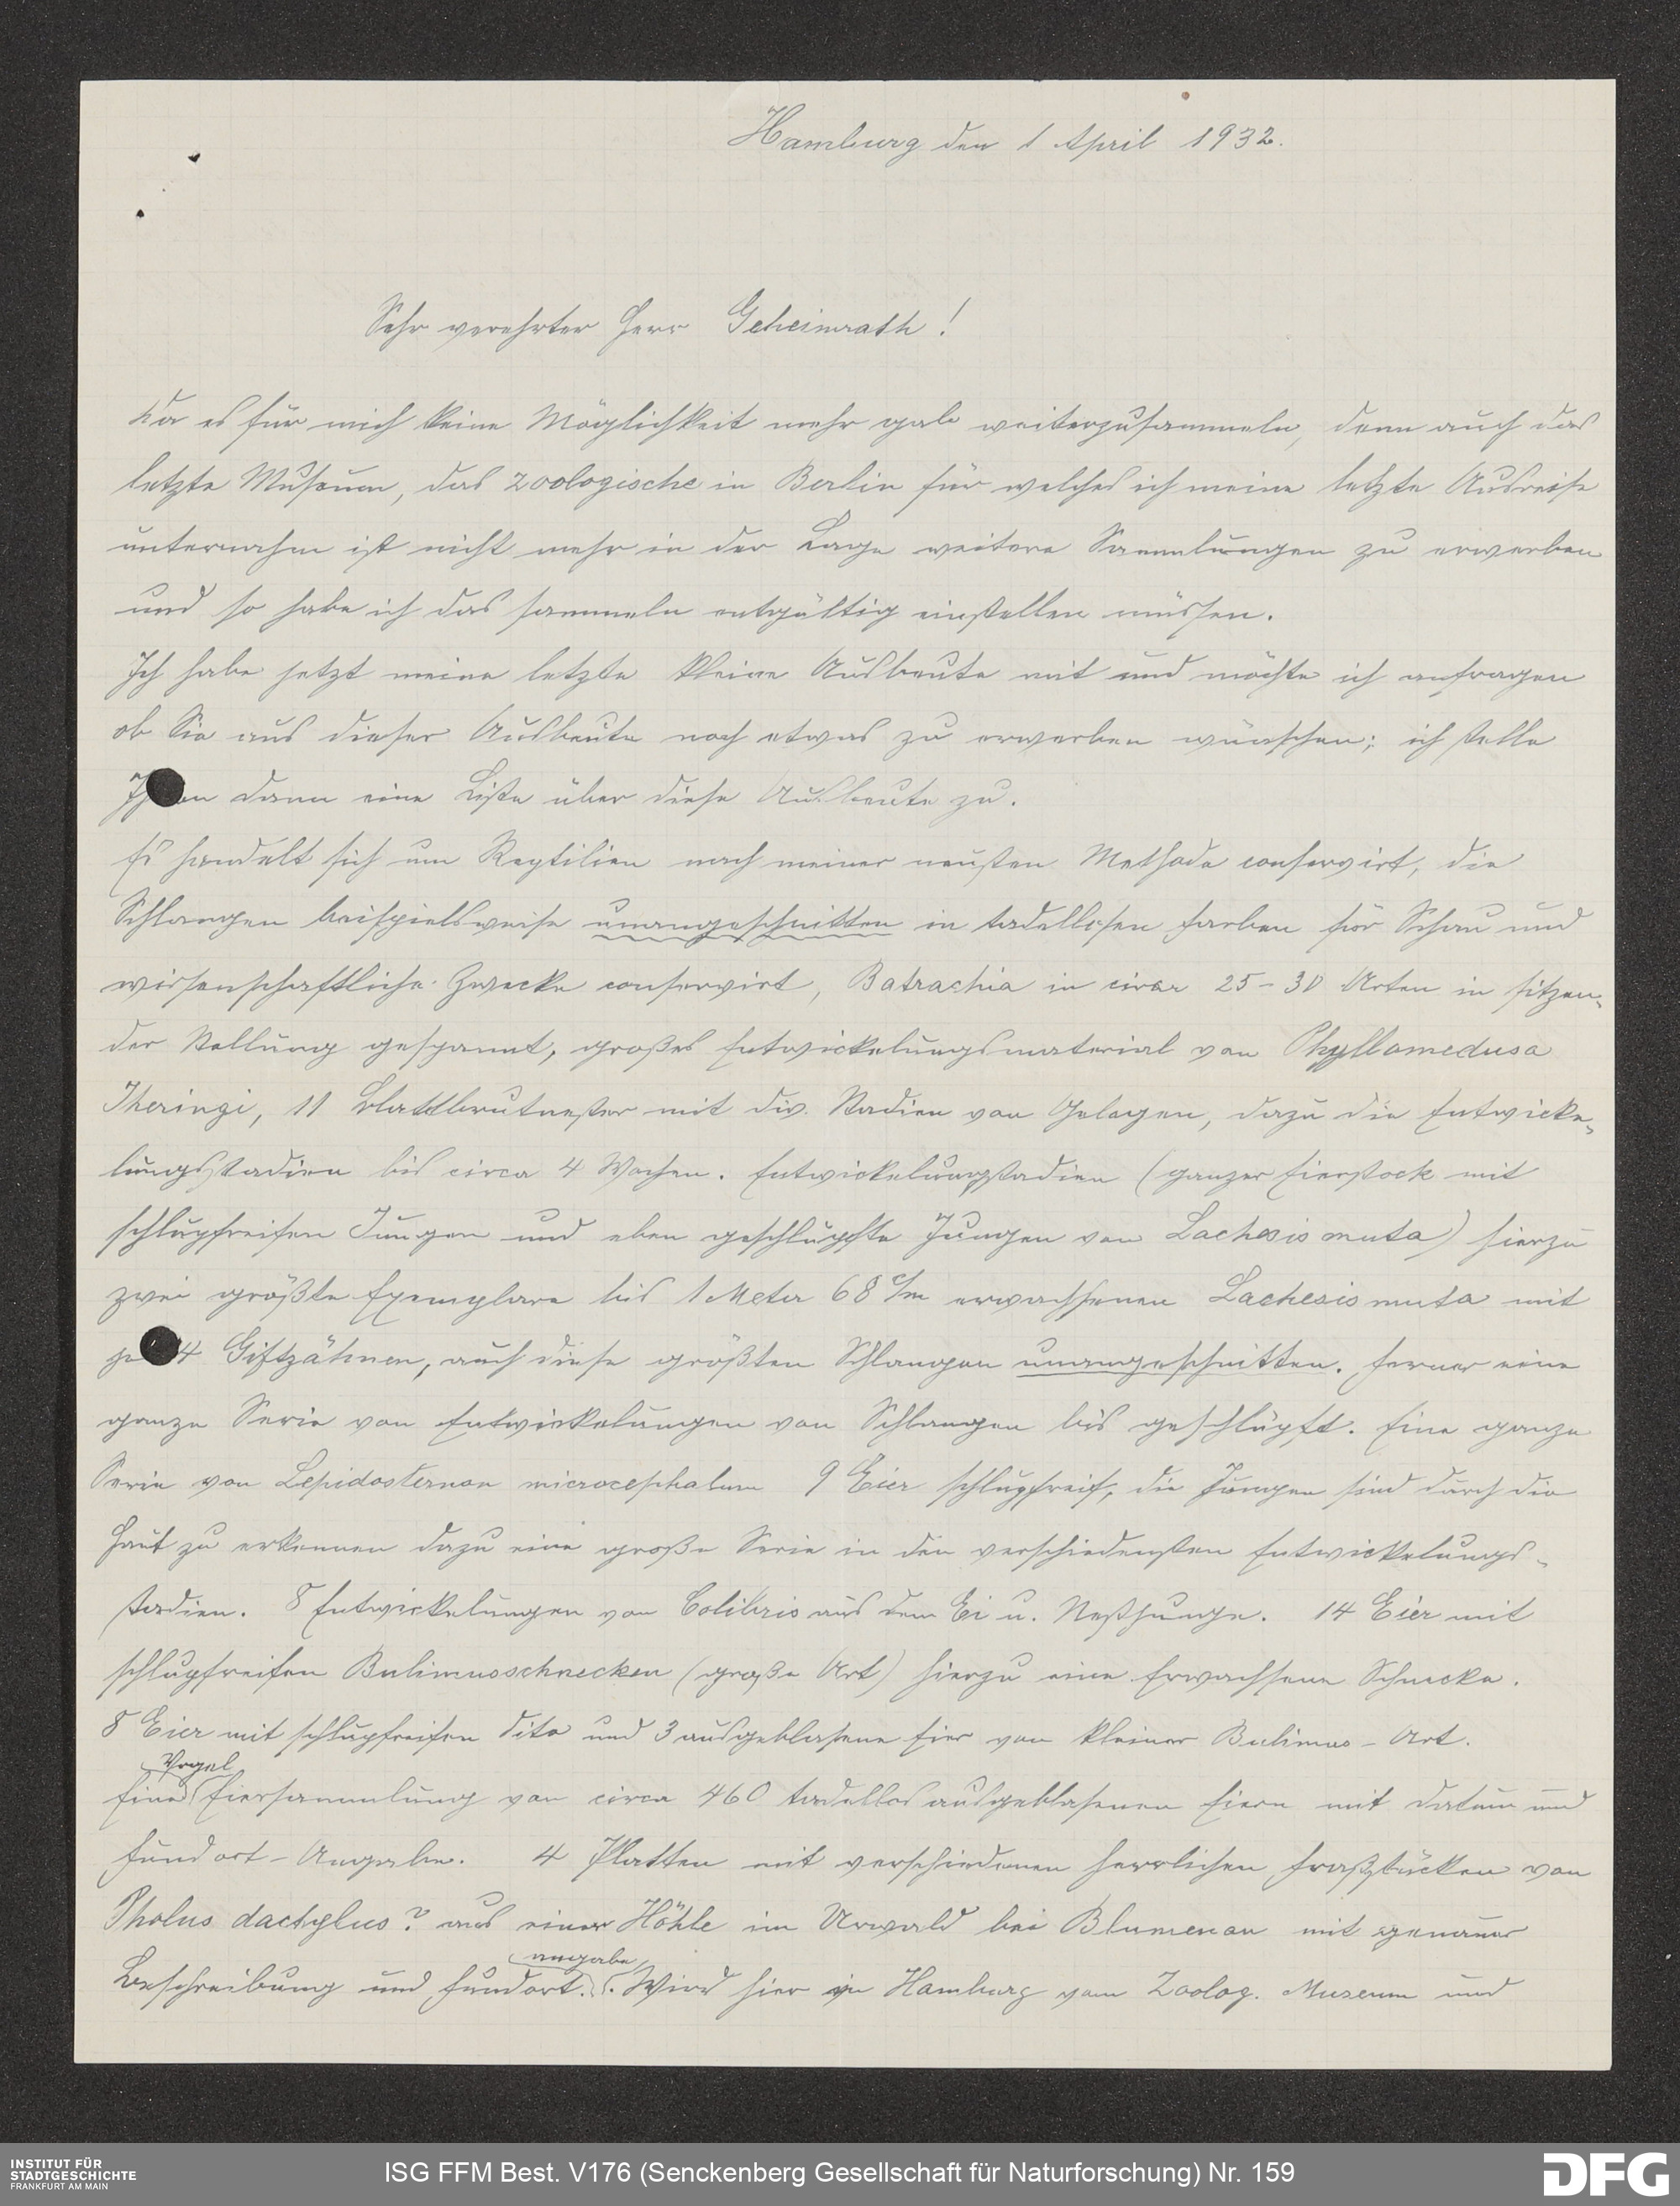 Hamburg den 1 April 1932.
Sehr verehrter Herr Geheimrath!
Da es für mich keine Möglichkeit mehr gab weiterzusammeln, denn auch das
letzte Museum, das zoologische in Berlin für welches ich meine letzte Ausreise
unternahm ist nicht mehr in der Lage weitere Sammlungen zu erwerben
und so habe ich das sammeln entgültig einstellen müssen.
Ich habe jetzt meine letzte kleine Ausbeute mit und möchte ich anfragen
ob Sie aus dieser Ausbeute noch etwas zu erwerben wünschen; ich stelle
Ihnen dann eine Liste über diese Ausbeute zu.
Es handelt sich um Reptilien nach meiner neusten Methode conservirt, die
Schlangen beispielsweise unangeschnitten in tadellosen Farben für Schau und
wissenschaftliche Zwecke conservirt, Batrachia in circa 25-30 Arten in sitzen-
der Stellung gespannt, großes Entwickelungsmaterial von Phyllomedusa
Iheringi, 11 Blattbrutnester mit div. Stadien von Gelegen, dazu die Entwicke-
lungsstadien bis circa 4 Wochen. Entwickelungstadien (ganzer Eierstock mit
schlupfreifen Jungen und eben geschlüpfte Jungen von Lachesis muta) hierzu
zwei größte Exemplare bis 1 Meter 68 c/m erwachsenen Lachesis muta mit
je 4 Giftzähnen, auch diese größten Schlangen unangeschnitten. Ferner eine
ganze Serie von Entwickelungen von Schlangen bis geschlüpft. Eine ganze
Serie von Lepidosternon microcephalum 9 Eier schlupfreif, die Jungen sind durch die
Haut zu erkennen dazu eine große Serie in den verschiedensten Entwickelungs-
stadien. 8 Entwickelungen von Colibris aus dem Ei u. Nestjunge. 14 Eier mit
schlupfreifen Bulimusschnecken (große Art) hierzu eine Erwachsene Schnecke.
8 Eier mit schlupfreifen dito und 3 ausgeblasene Eier von kleiner Bulimus-Art.
Vogel
Eine Eiersammlung von circa 460 tadellos ausgeblasenen Eiern mit Datum und
Fundort-Angabe. 4 Platten mit verschiedenen herrlichen Fraßstücken von
Pholus dactylus? aus einer Höhle im Urwald bei Blumenau mit genauer
angabe
Beschreibung und Fundort. Wird hier in Hamburg vom Zoolog. Museum und
INSTITUT FÜR
STADTGESCHICHTE
FRANKFURT AM MAIN
ISG FFM Best. V176 (Senckenberg Gesellschaft für Naturforschung) Nr. 159
DFG